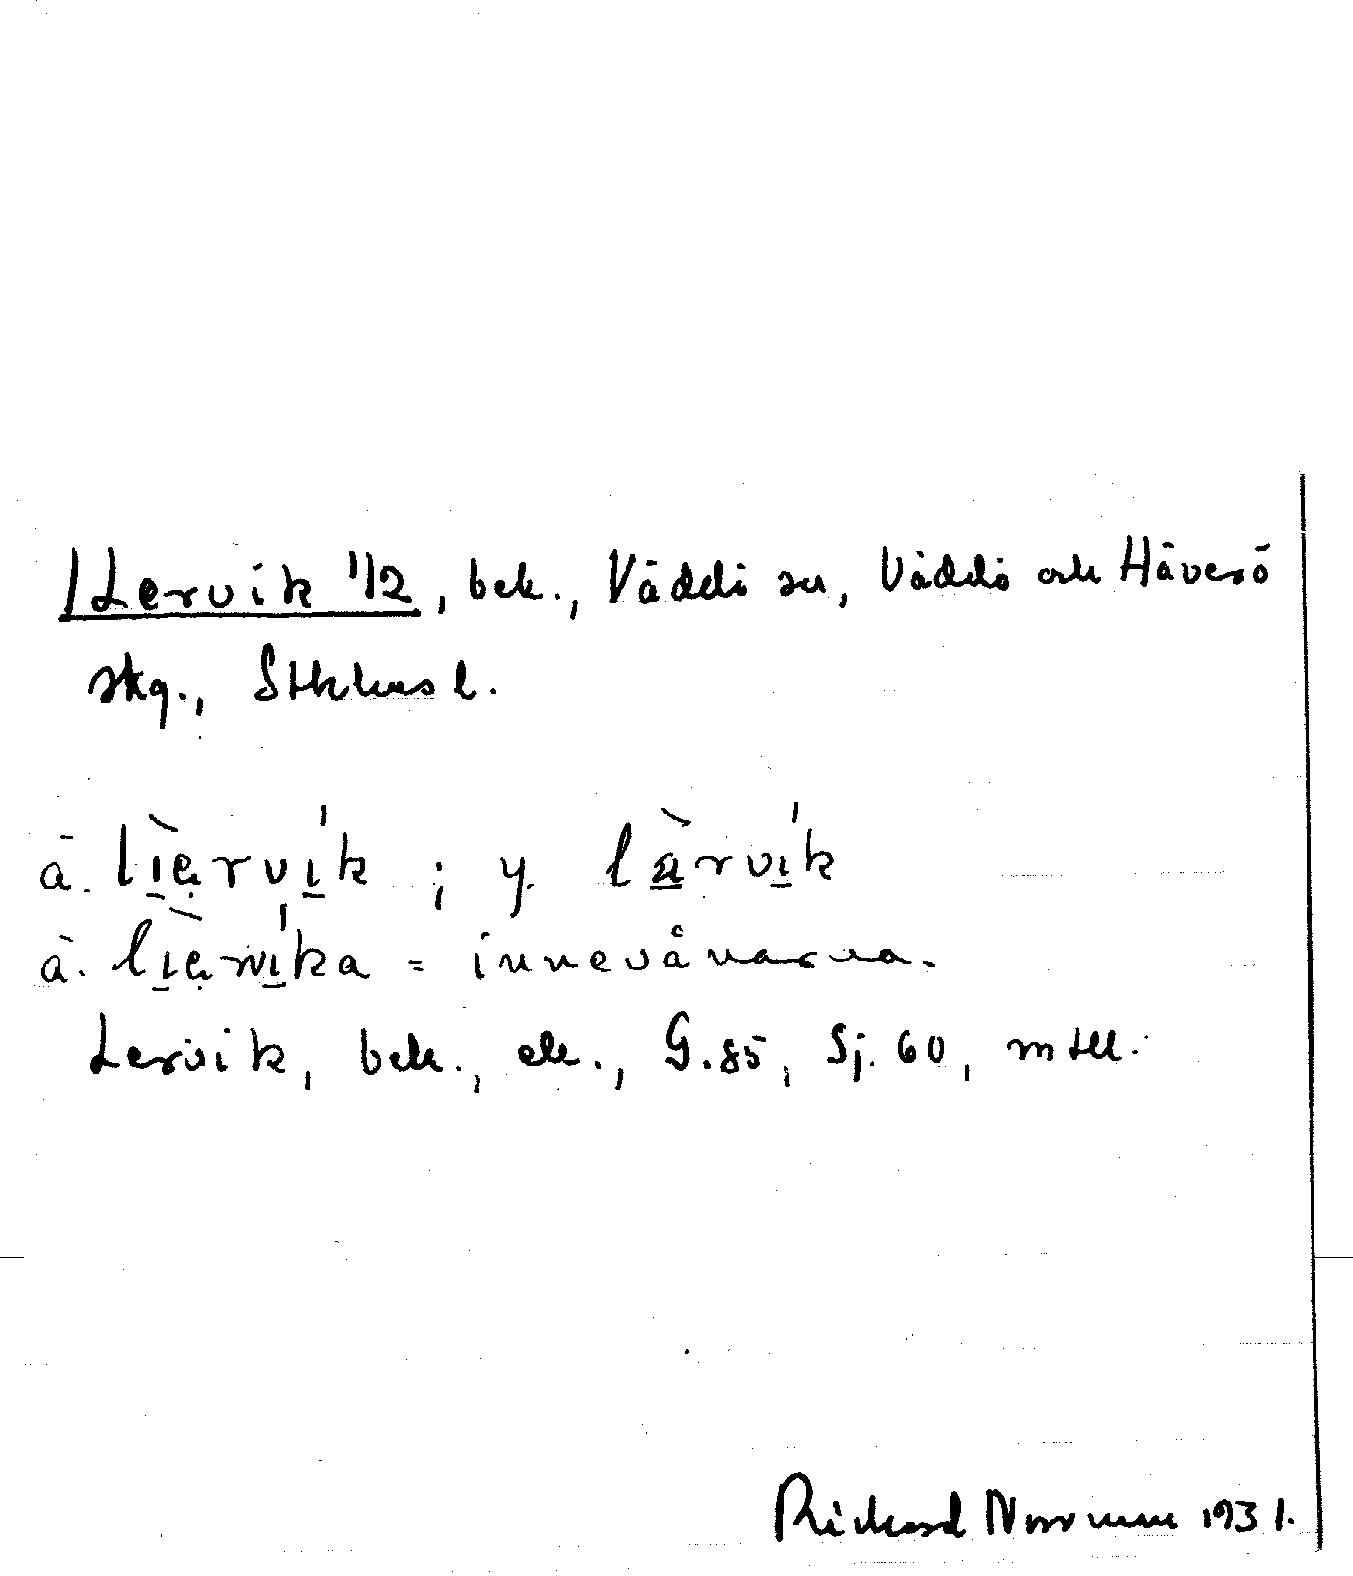 Lervik 1/2, bek., Väddö sn, Väddö och Häverö
skg., Sthlms l.
ä. lìe̱rvík ; y. lä̀rvík
ä. lìe̱rvíka = innevånarna.
Lervik, bek., ek., G. 85, Sj. 60, mtll.
Rickard Norrman 1931.